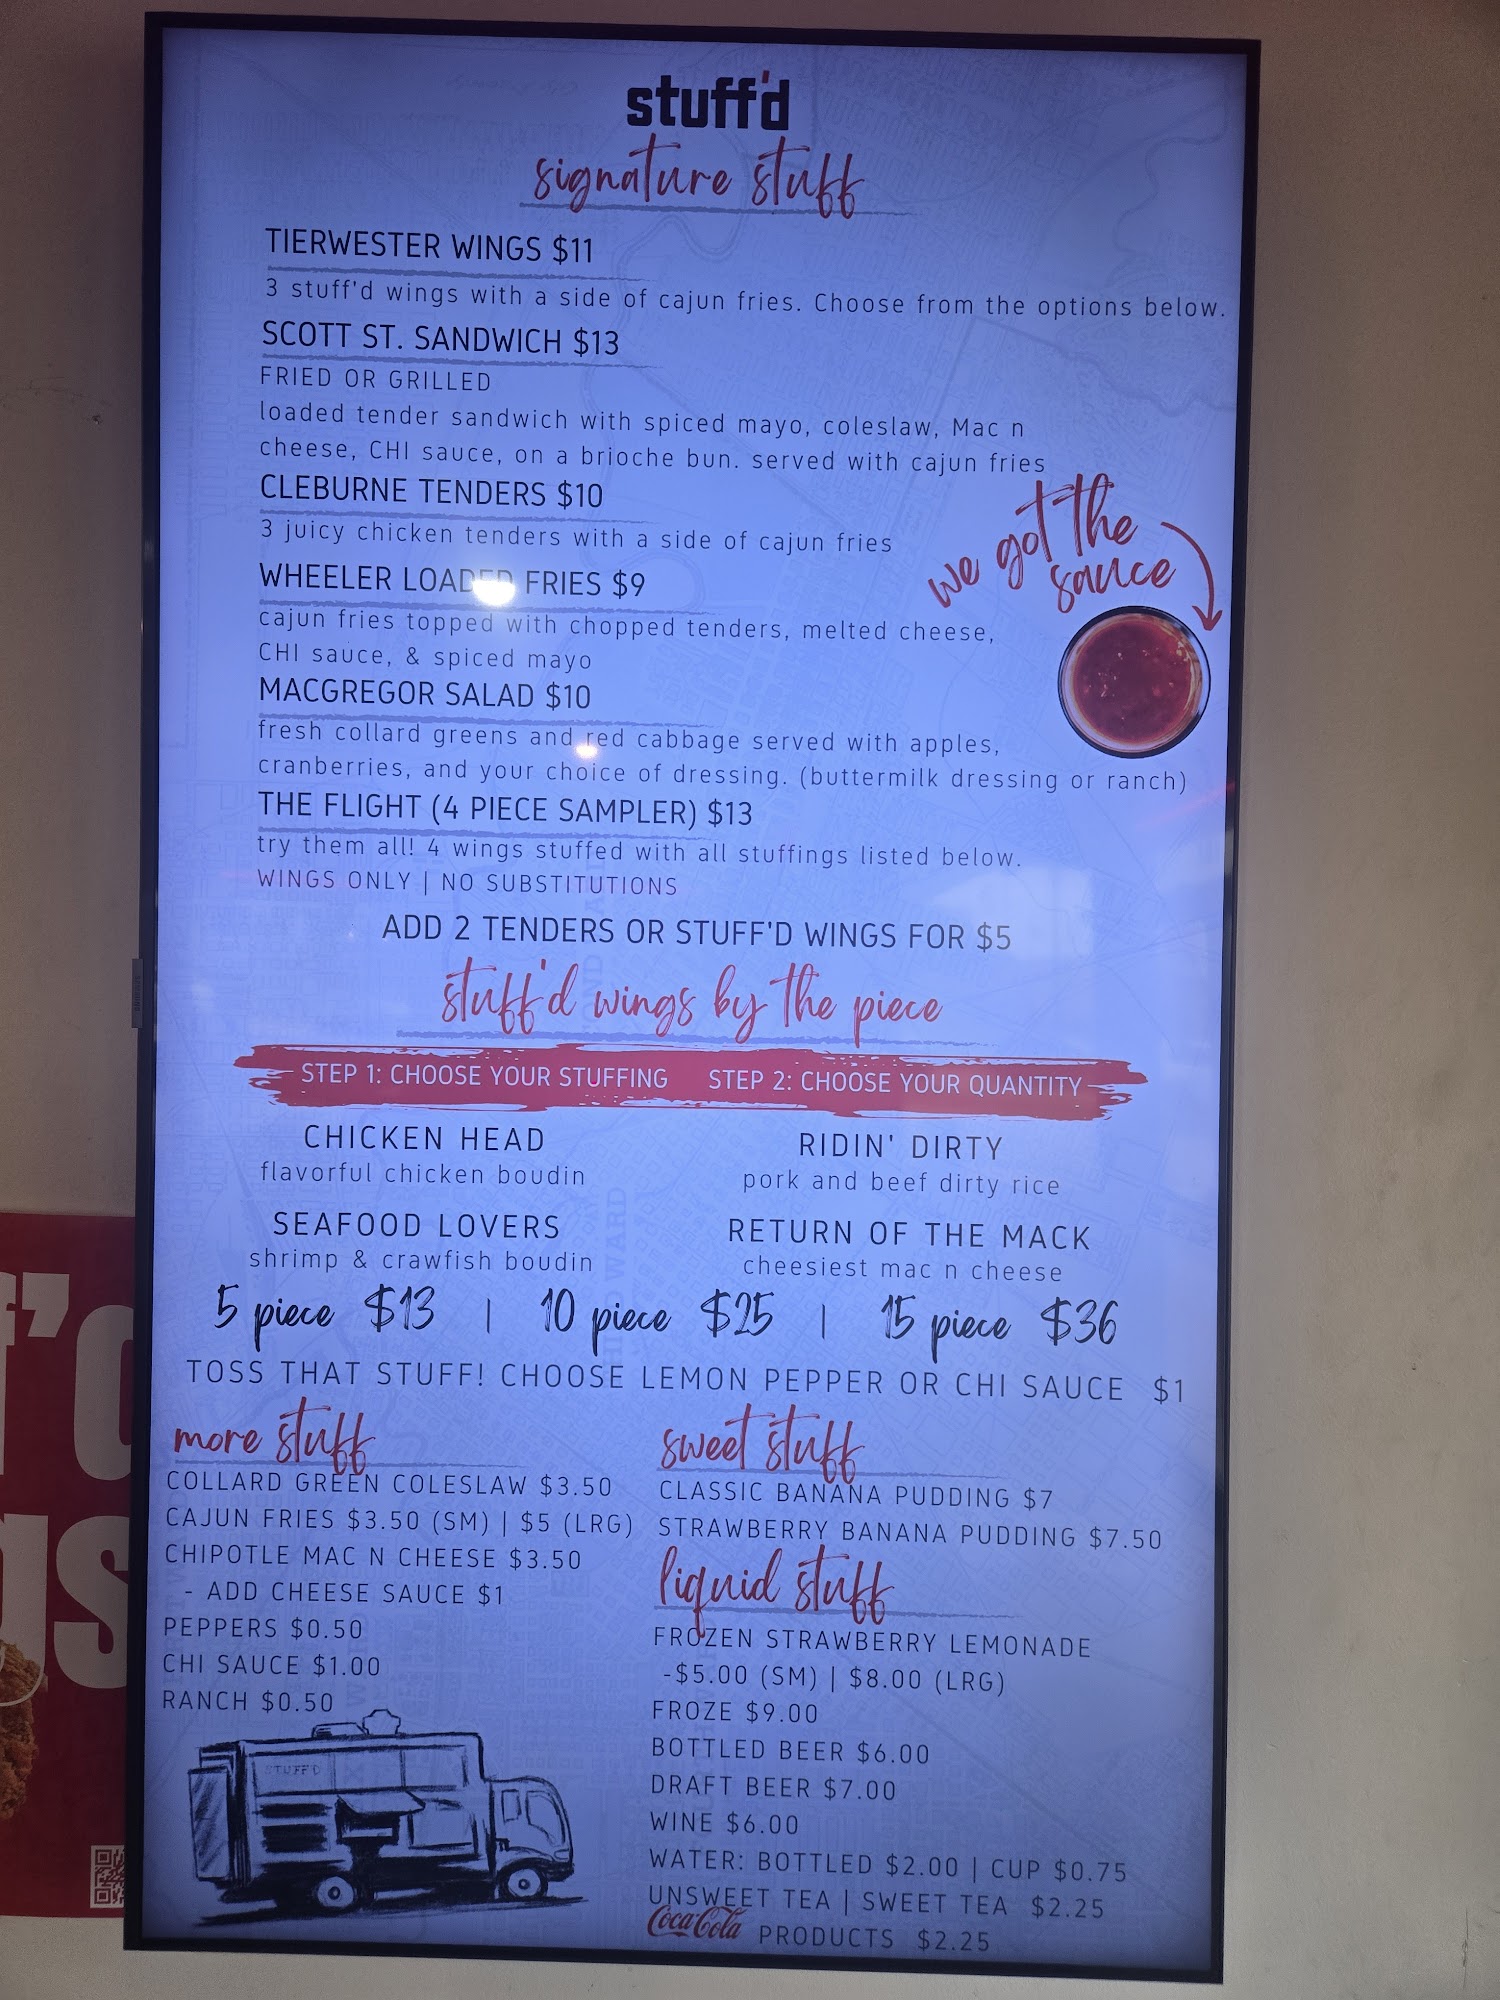 stuff'd
signature stuff
TIERWESTER WINGS $11
3 stuff'd wings with a side of cajun fries. Choose from the options below.
SCOTT ST. SANDWICH $13
FRIED OR GRILLED
loaded tender sandwich with spiced mayo, coleslaw, Mac n
cheese, CHI sauce, on a brioche bun. served with cajun fries
CLEBURNE TENDERS $10
3 juicy chicken tenders with a side of cajun fries
we got the
sauce
WHEELER LOADED FRIES $9
cajun fries topped with chopped tenders, melted cheese,
CHI sauce, & spiced mayo
MACGREGOR SALAD $10
fresh collard greens and red cabbage served with apples,
cranberries, and your choice of dressing. (buttermilk dressing or ranch)
THE FLIGHT (4 PIECE SAMPLER) $13
try them all! 4 wings stuffed with all stuffings listed below.
WINGS ONLY | NO SUBSTITUTIONS
ADD 2 TENDERS OR STUFF'D WINGS FOR $5
stuff'd wings by the piece
STEP 1: CHOOSE YOUR STUFFING STEP 2: CHOOSE YOUR QUANTITY
CHICKEN HEAD
flavorful chicken boudin
RIDIN' DIRTY
pork and beef dirty rice
SEAFOOD LOVERS
shrimp & crawfish boudin
RETURN OF THE MACK
cheesiest mac n cheese
5 piece $13 | 10 piece $25 | 15 piece $36
TOSS THAT STUFF! CHOOSE LEMON PEPPER OR CHI SAUCE $1
more stuff
COLLARD GREEN COLESLAW $3.50
CAJUN FRIES $3.50 (SM) | $5 (LRG)
CHIPOTLE MAC N CHEESE $3.50
- ADD CHEESE SAUCE $1
PEPPERS $0.50
CHI SAUCE $1.00
RANCH $0.50
STUFF'D
sweet stuff
CLASSIC BANANA PUDDING $7
STRAWBERRY BANANA PUDDING $7.50
liquid stuff
FROZEN STRAWBERRY LEMONADE
-$5.00 (SM) | $8.00 (LRG)
FROZE $9.00
BOTTLED BEER $6.00
DRAFT BEER $7.00
WINE $6.00
WATER: BOTTLED $2.00 | CUP $0.75
UNSWEET TEA | SWEET TEA $2.25
Coca-Cola PRODUCTS $2.25